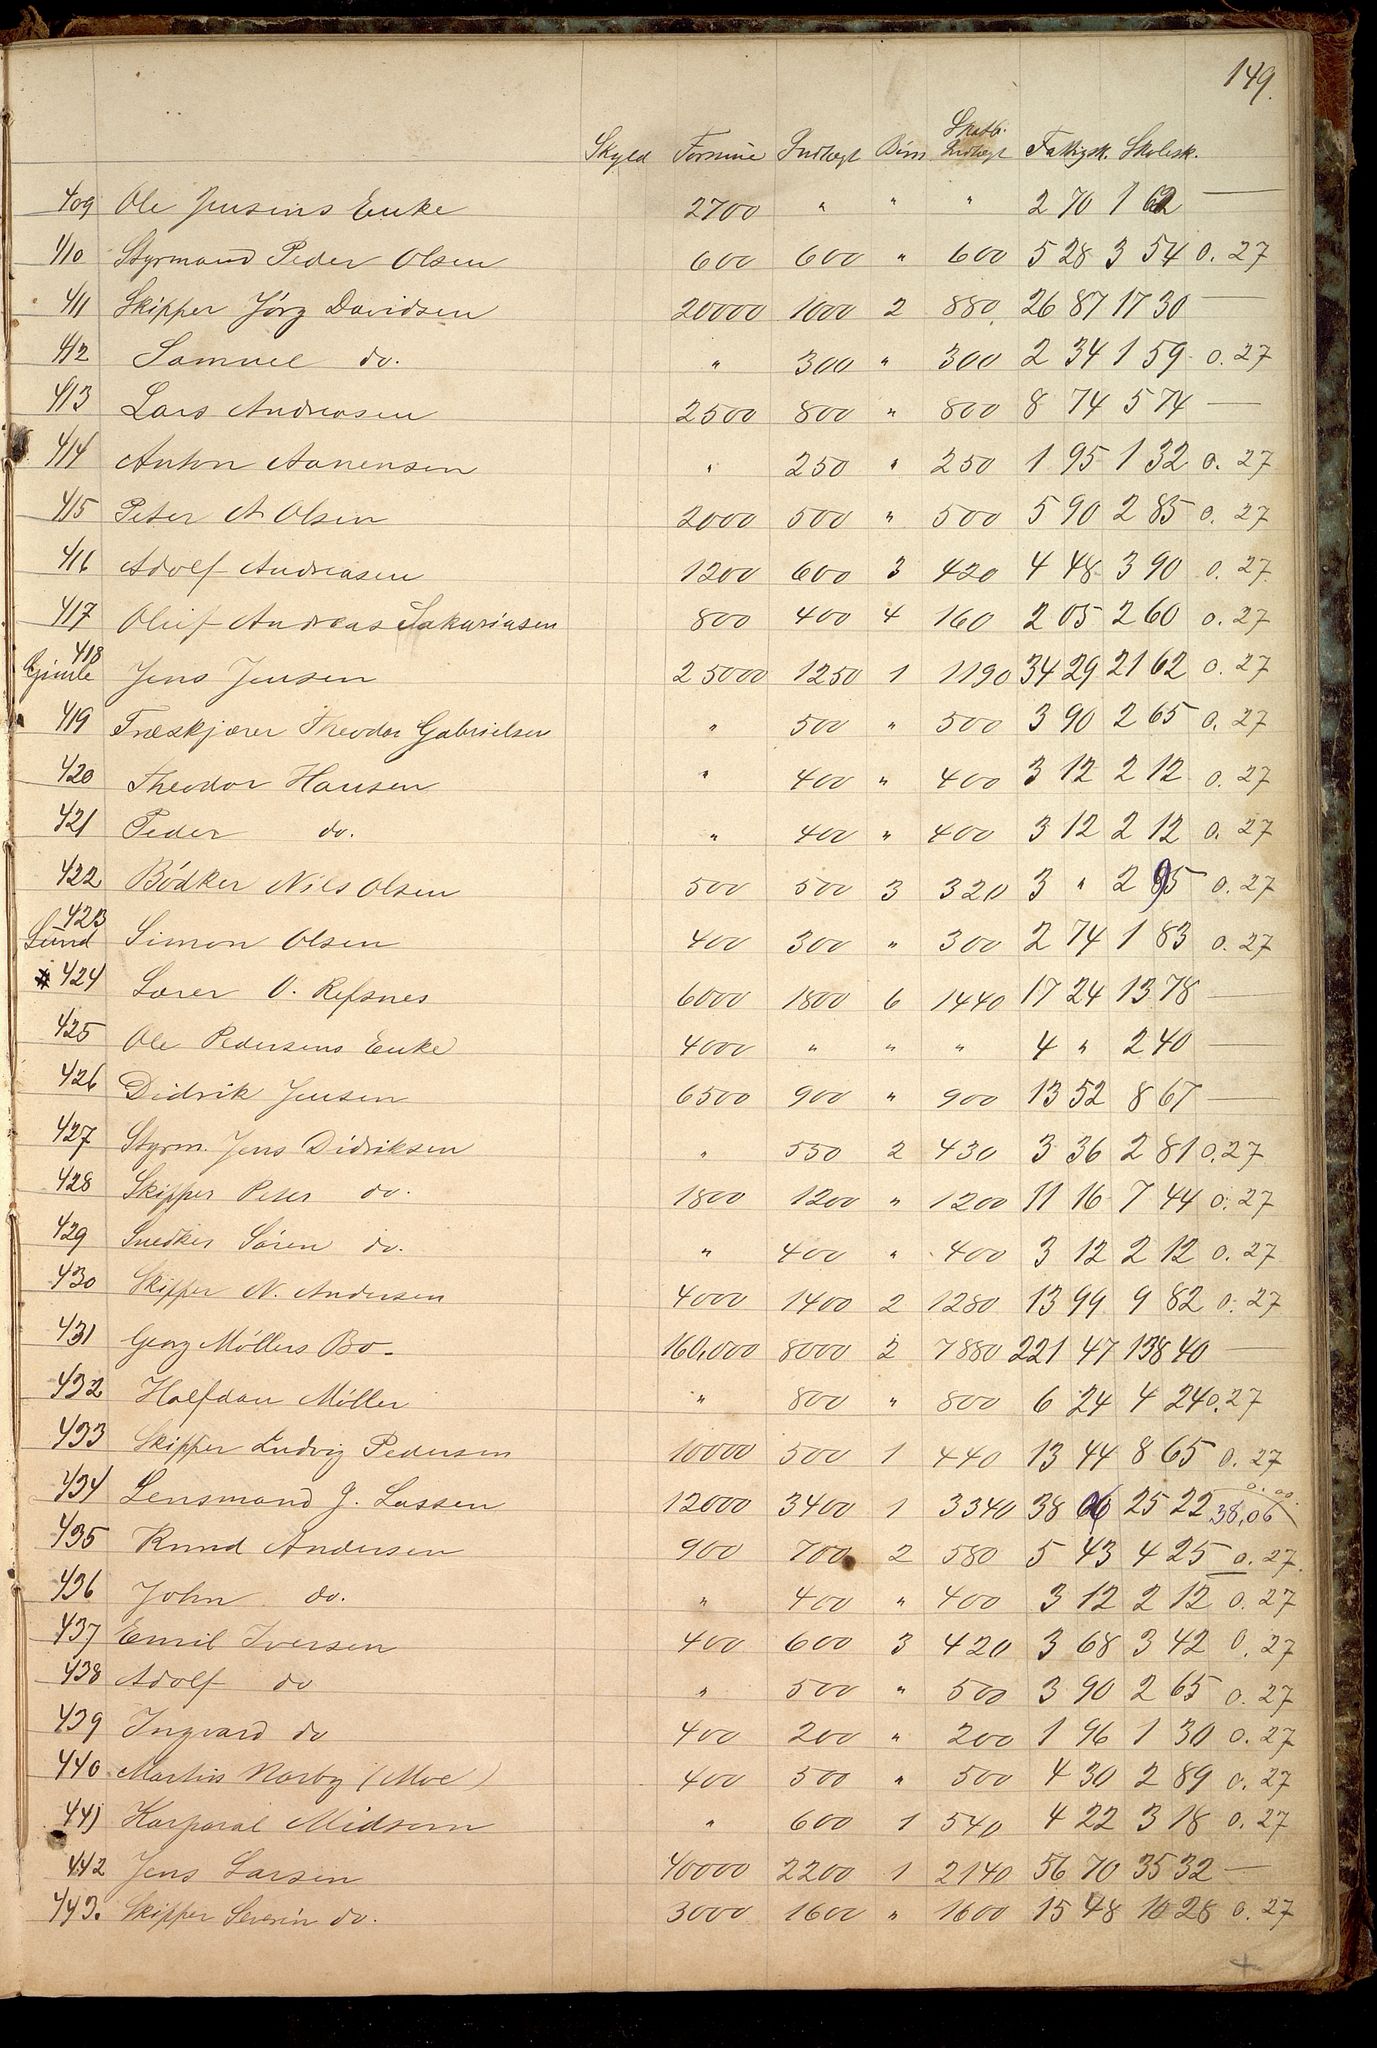 149.
Skatb.
Skyld Formue Indtægt Børn Indtægt Fattigsk. Skolesk.
409 Ole Jensens Enke 2700 " " " 2 70 1 62 —
410 Styrmand Peder Olsen 600 600 " 600 5 28 3 54 0.27
411 Skipper Jørg Davidsen 20000 1000 2 880 26 87 17 30 —
412 Samuel do. " 300 " 300 2 34 1 59 0.27
413 Lars Andreasen 2500 800 " 800 8 74 5 74 —
414 Anton Aanensen " 250 " 250 1 95 1 32 0.27
415 Peter A. Olsen 2000 500 " 500 5 90 2 85 0.27
416 Adolf Andreasen 1200 600 3 420 4 48 3 90 0.27
417 Oluf Andreas Sakariasen 800 400 4 160 2 05 2 60 0.27
418
Gimle Jens Jensen 25000 1250 1 1190 34 29 21 62 0.27
419 Træskjærer Theodor Gabrielsen " 500 " 500 3 90 2 65 0.27
420 Theodor Hansen " 400 " 400 3 12 2 12 0.27
421 Peder do. " 400 " 400 3 12 2 12 0.27
422 Bødker Nils Olsen 500 500 3 320 3 " 2 95 0.27
423
Lund Simon Olsen 400 300 " 300 2 74 1 83 0.27
424 Lærer O. Refsnes 6000 1800 6 1440 17 24 13 78 —
425 Ole Pedersens Enke 4000 " " " 4 " 2 40 —
426 Didrik Jensen 6500 900 " 900 13 52 8 67 —
427 Styrm. Jens Didriksen " 550 2 430 3 36 2 81 0.27
428 Skipper Peter do. 1800 1200 " 1200 11 16 7 44 0.27
429 Snedker Søren do. " 400 " 400 3 12 2 12 0.27
430 Skipper N. Andersen 4000 1400 2 1280 13 99 9 82 0.27
431 Georg Møllers Bo. 160,000 8000 2 7880 221 47 138 40 —
432 Halfdan Møller " 800 " 800 6 24 4 24 0.27
433 Skipper Ludvig Pedersen 10000 500 1 440 13 44 8 65 0.27
434 Lensmand J. Lassen 12000 3400 1 3340 38 06 25 22 0.00. 38,06
435 Knud Andersen 900 700 2 580 5 43 4 25 0.27.
436 John do. " 400 " 400 3 12 2 12 0.27
437 Emil Iversen 400 600 3 420 3 68 3 42 0.27
438 Adolf do " 500 " 500 3 90 2 65 0.27
439 Ingvard do 400 200 " 200 1 96 1 30 0.27
440 Martin Narby (Moe) 400 500 " 500 4 30 2 89 0.27
441 Korporal Midsem " 600 1 540 4 22 3 18 0.27
442 Jens Larsen 40000 2200 1 2140 56 70 35 32 —
443. Skipper Severin do. 3000 1600 " 1600 15 48 10 28 0.27